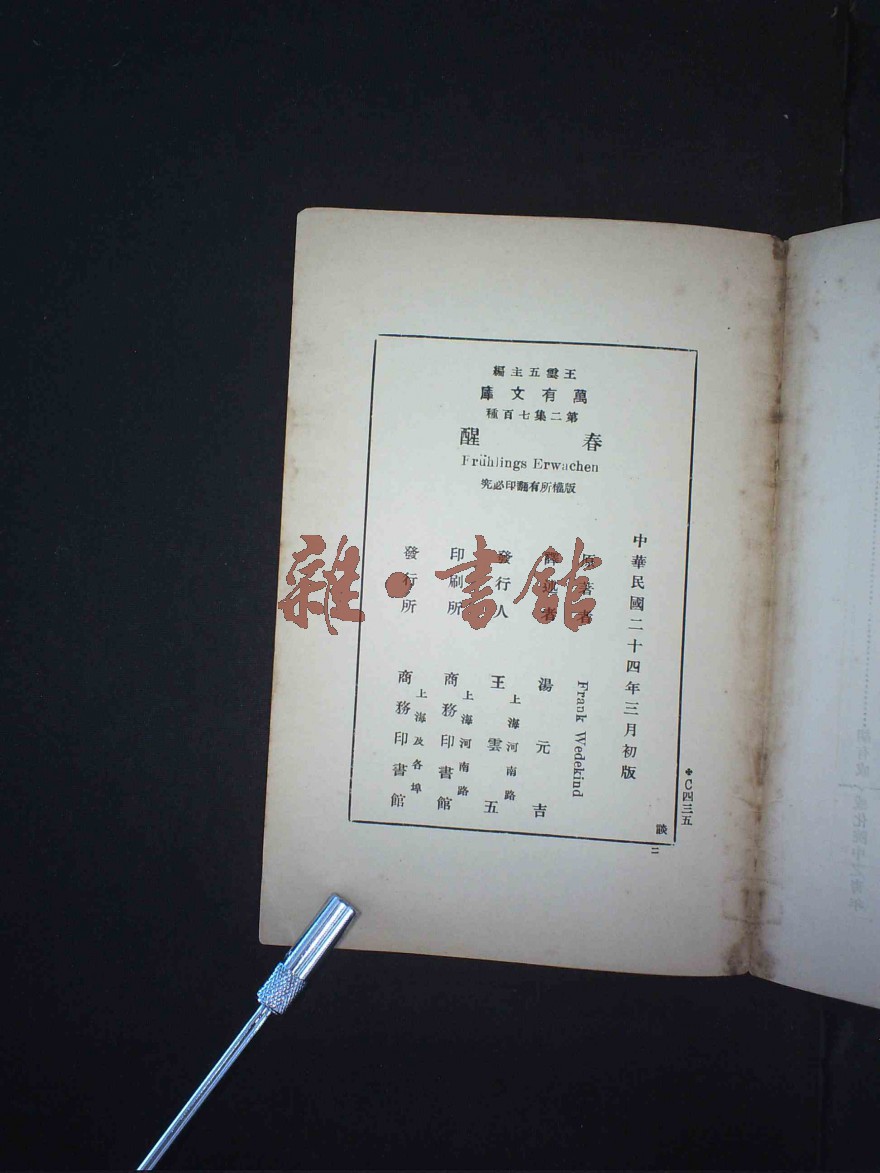 王雲五主編
萬有文庫
第二集七百種
春醒
Frühlings Erwachen
版權所有翻印必究
中華民國二十四年三月初版
原著者 Frank Wedekind
譯述者 湯元吉
發行人 王雲五
上海河南路
印刷所 商務印書館
上海河南路
發行所 商務印書館
上海及各埠
*C四三五
談
二
雜·書館